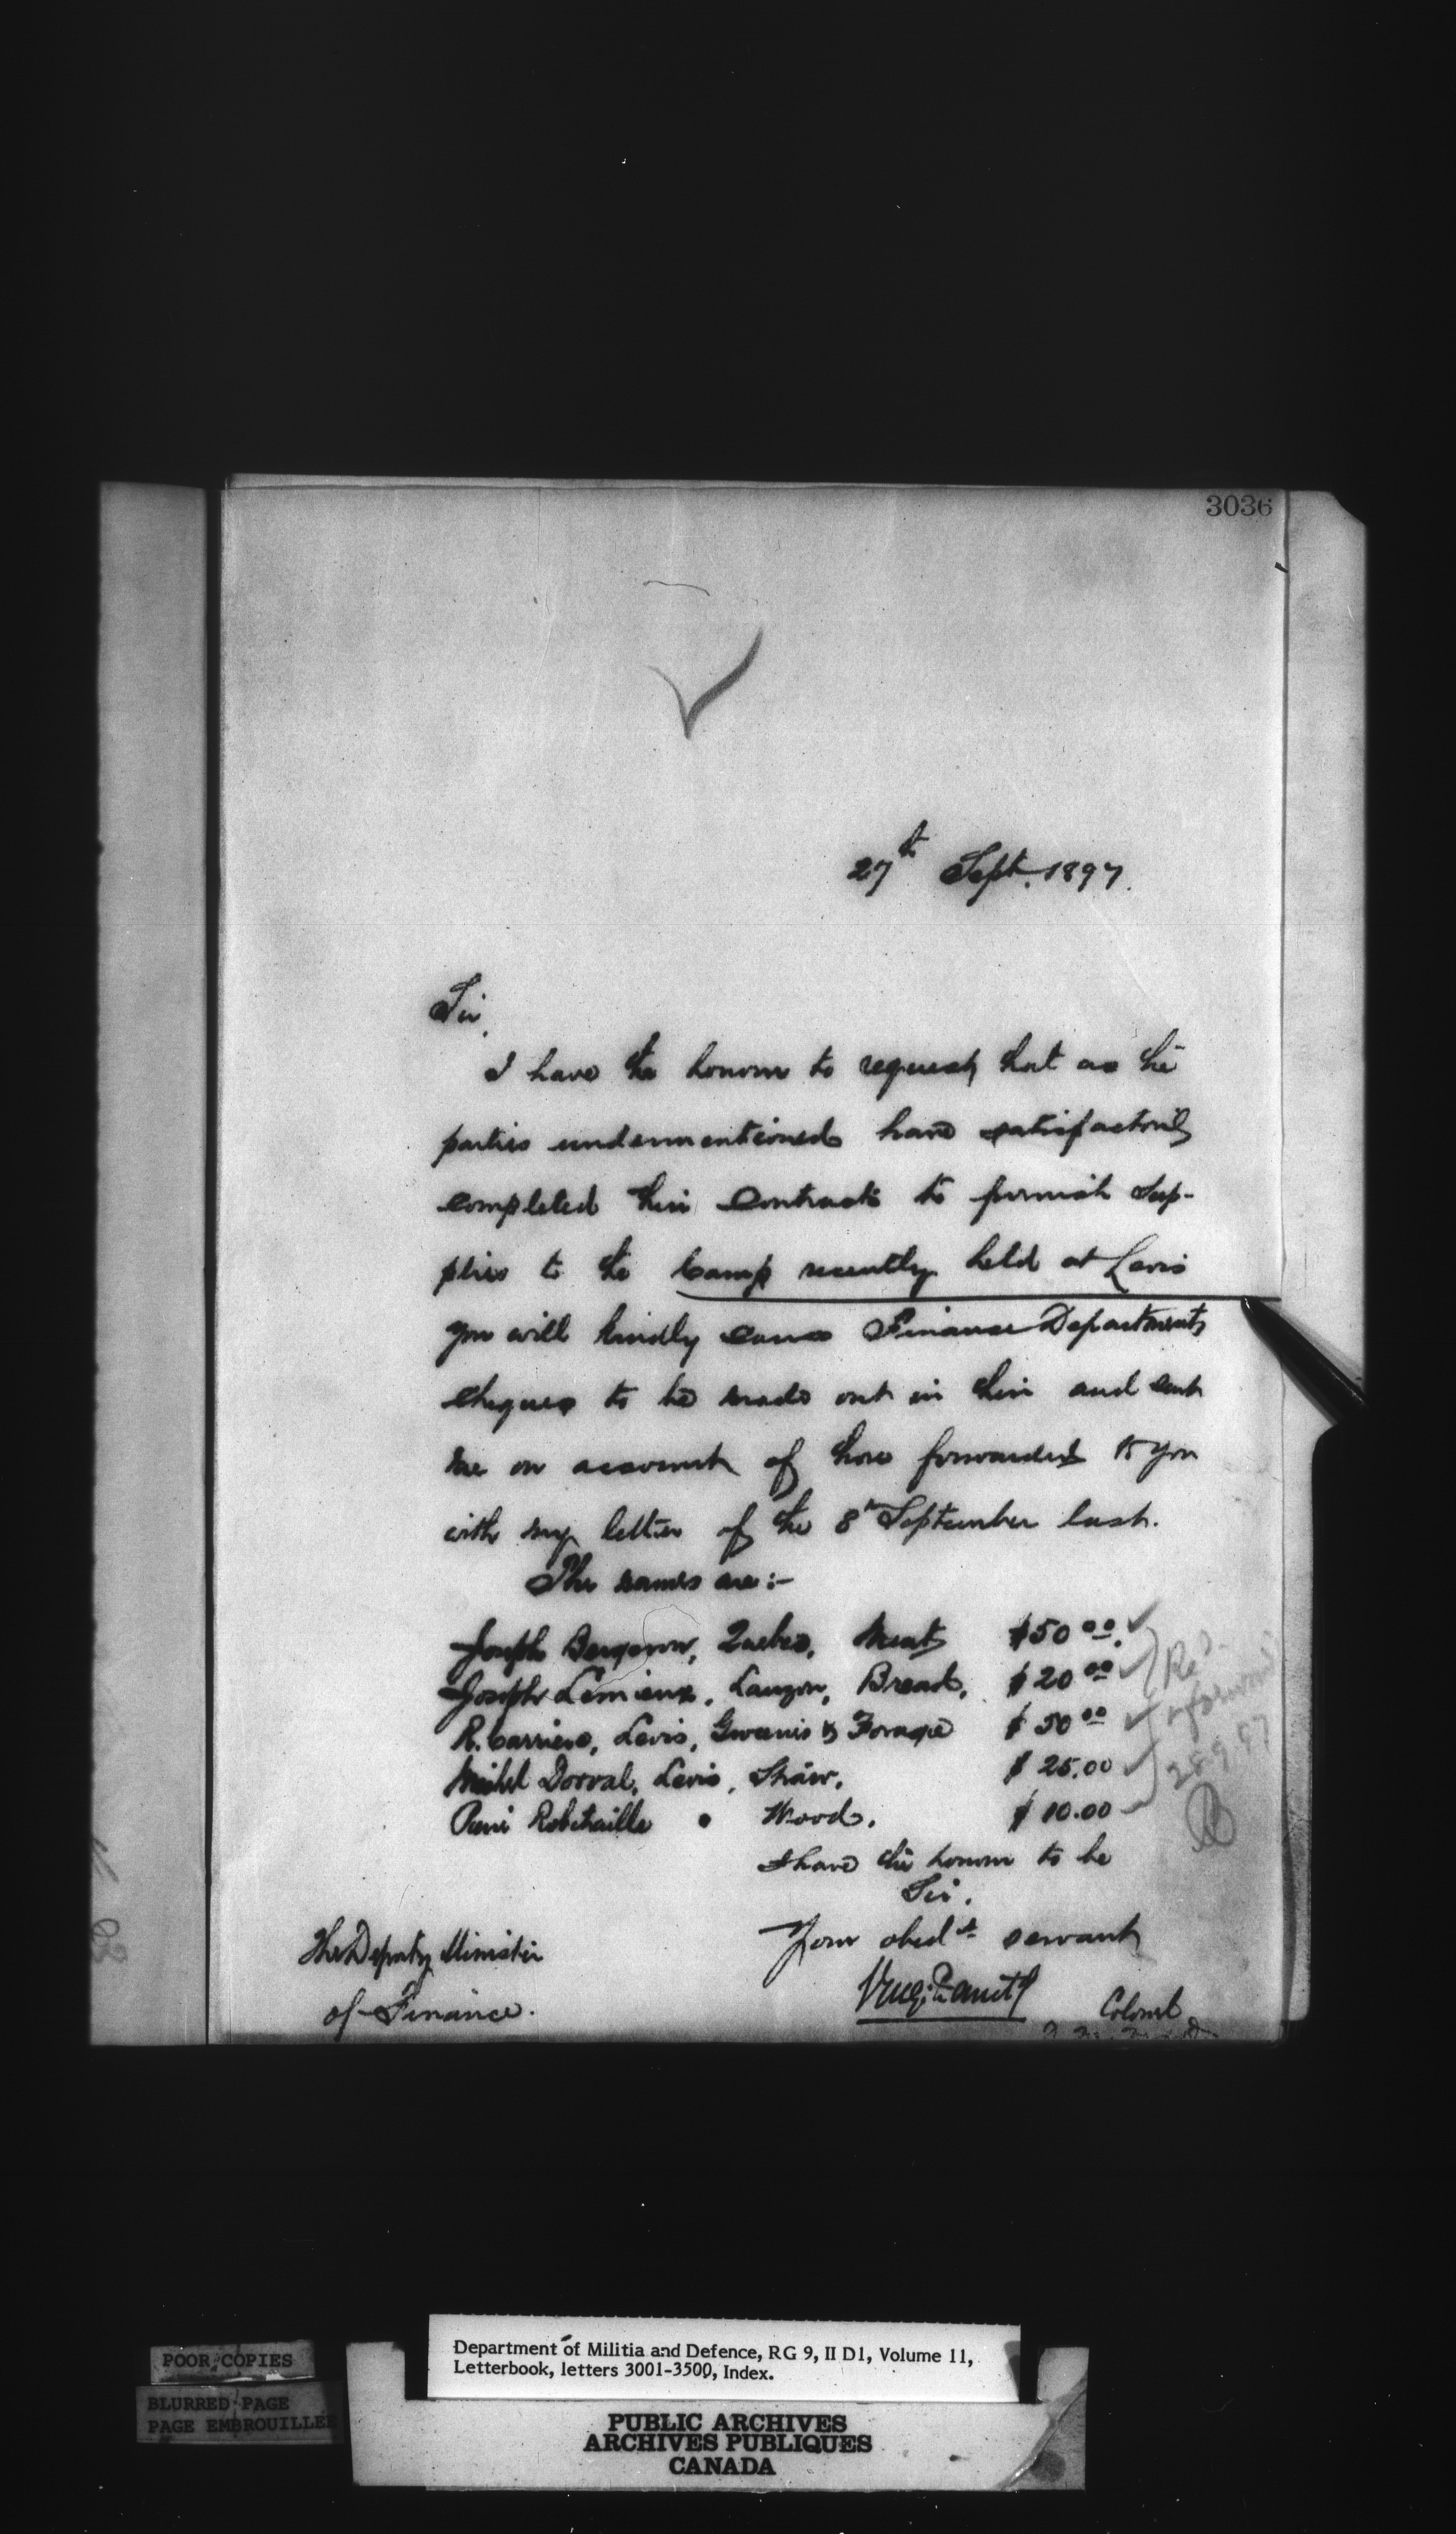 3036
27th Sept. 1897.
Sir,
I have the honour to request that as the
parties undermentioned have satisfactorily
completed their contracts to furnish sup-
plies to the Camp recently held at Levis
you will kindly cause Finance Department
cheques to be made out in their and sent
me on account of those forwarded to you
with my letter of the 8th September last.
The names are:-
Joseph Bergeron, Quebec, Meat $50.00
Joseph Lemieux, Lauzon, Bread, $20.00
R. Carriere, Levis, Groceries & Forage $50.00
Michel Dorval, Levis, Straw, $25.00
Robitaille " Wood, $10.00
Red
returned
28.9.97
I have the honour to be
Sir,
Your obedt servant
Colonel
The Deputy Minister
of Finance.
POOR COPIES
BLURRED PAGE
PAGE EMBROUILLEE
Department of Militia and Defence, RG 9, II D1, Volume 11,
Letterbook, letters 3001-3500, Index.
PUBLIC ARCHIVES
ARCHIVES PUBLIQUES
CANADA